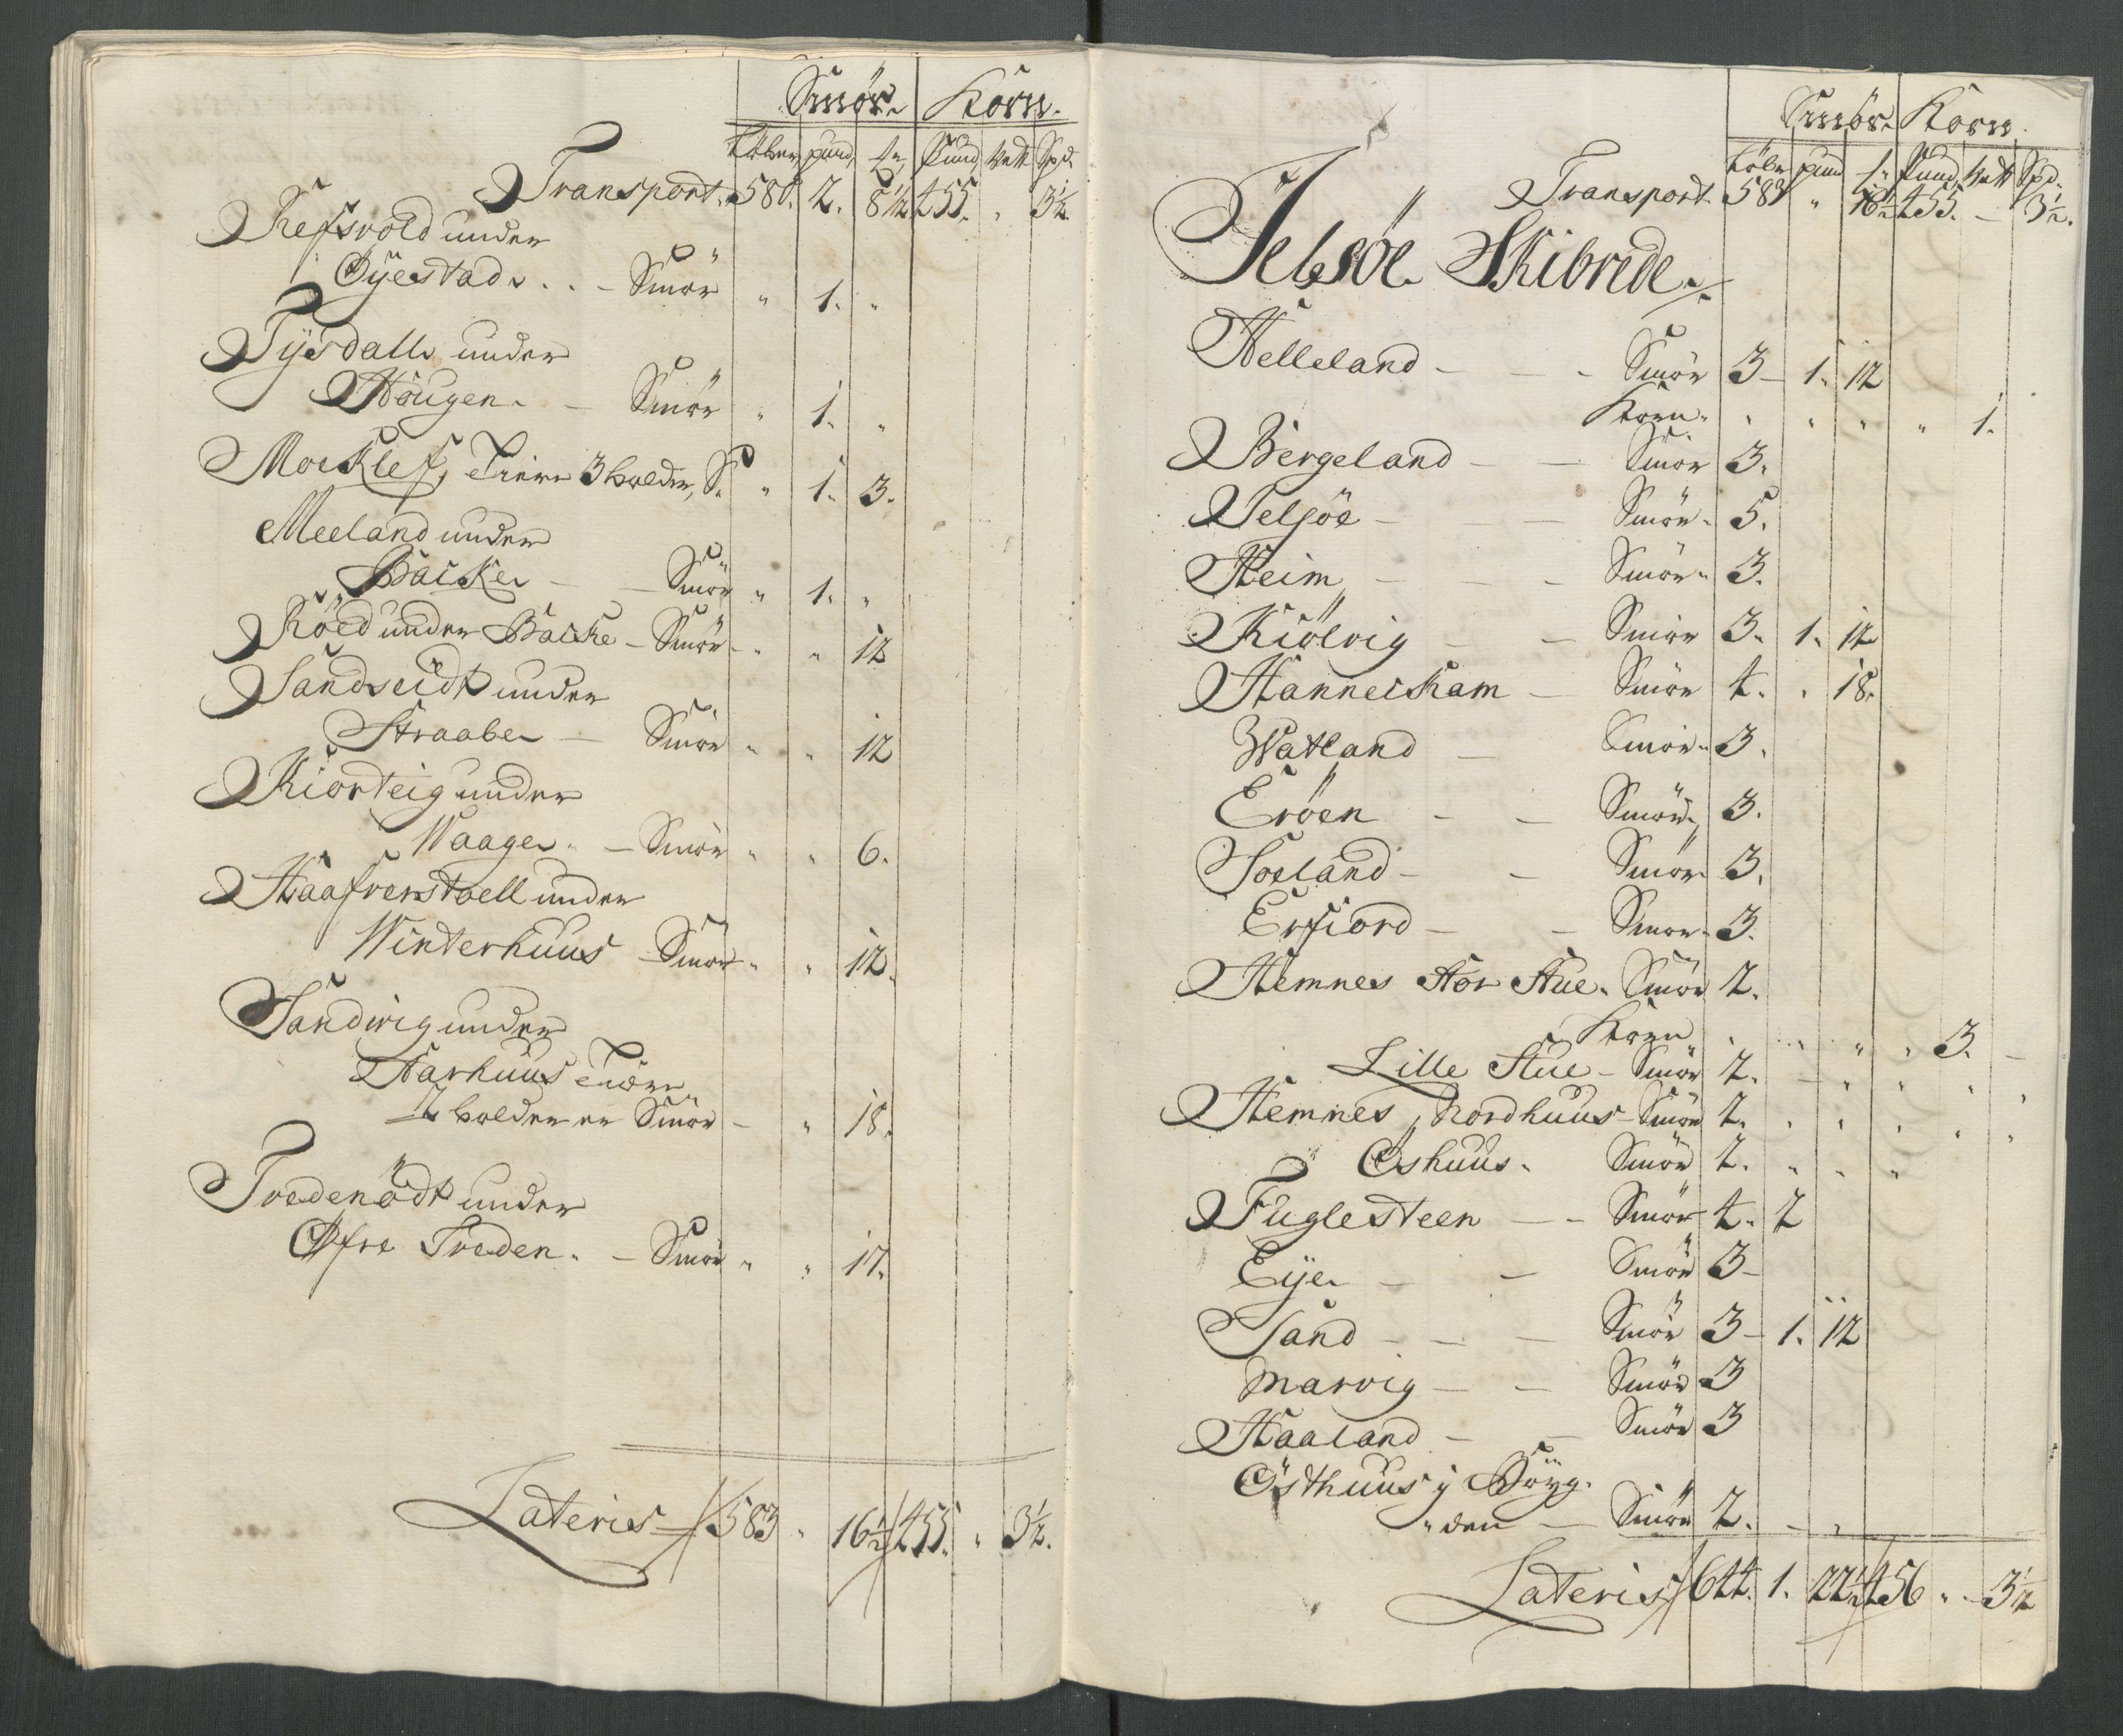 Smör. Korn.
Löber pund, Pund, Vett Spd.
Transport. 580. 2. 8½ 455. " 3½
Refsvold under
Öyestad. . . - Smör " 1. "
Tysdall under
Hougen. - Smör " 1. "
Mocklef, 3 Smör " 1. 3.
Meeland under
Backe - Smör " 1. "
Röed under Backe - Smör " " 12
Sandseidt under
Straabe - Smör " " 12
Kiorteig under
Waage. - Smör " " 6.
Haafrerstoell under
Winterhuus - Smör " " 12.
Sandvig under
Aarhuus
2 Smör - " 18.
Tvedenödt under
Öfre Tveden. - Smör " " 17.
Lateris 583 " 16½ 455. " 3½.
Smör. Korn.
Löber pund Pund, Vett Spd.
Transport. 583 " 16½ 455. - 3½.
Jelsöe Skibrede
Helleland - - - Smör 3 - 1. 12
Korn. " " " " 1.
Bergeland - - Smör 3.
Jelsöe - - Smör. 5.
Heim - - - Smör. 3.
Kiölvig - - Smör 3. 1. 12
Hanneckam - Smör 4. . 18.
Watland - Smör. 3.
Eröen - - Smör 3.
Soeland - - Smör 3.
Erfiord - - Smör. 3.
Hemnes Stor Stue. Smör 2.
Korn . . " " 3. -
Lille Stue - Smör 2. - " " " "
Hemnes Nordhuus - Smör 2. . " " " "
Öshuus. Smör 2. " " "
Fuglesteen - - Smör 4. 2
Eye - - Smör 3 -
Sand - - - Smör 3 - 1. 12
Marvig - - Smör 3
Haaland - - Smör 3
Östhuus i Böyg.
"den - Smör 2. - "
Lateris 644. 1. 22½ 456 " - 3½